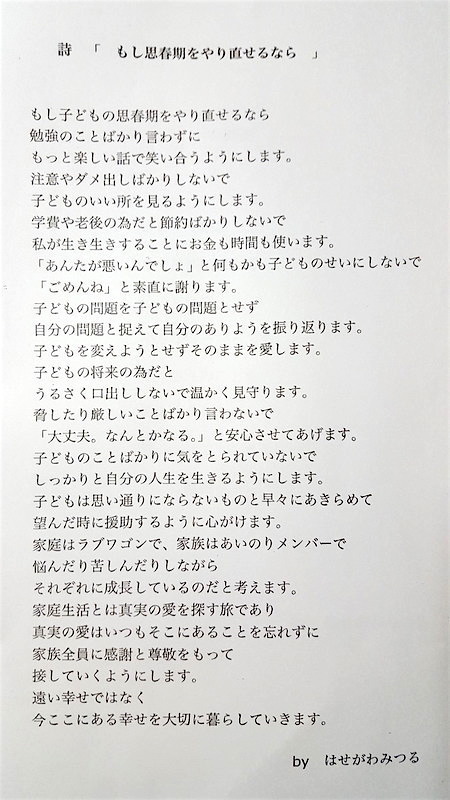 詩　「　もし思春期をやり直せるなら　」
もし子どもの思春期をやり直せるなら
勉強のことばかり言わずに
もっと楽しい話で笑い合うようにします。
注意やダメ出しばかりしないで
子どものいい所を見るようにします。
学費や老後の為だと節約ばかりしないで
私が生き生きすることにお金も時間も使います。
「あんたが悪いんでしょ」と何もかも子どものせいにしないで
「ごめんね」と素直に謝ります。
子どもの問題を子どもの問題とせず
自分の問題と捉えて自分のありようを振り返ります。
子どもを変えようとせずそのままを愛します。
子どもの将来の為だと
うるさく口出ししないで温かく見守ります。
脅したり厳しいことばかり言わないで
「大丈夫。なんとかなる。」と安心させてあげます。
子どものことばかりに気をとられていないで
しっかりと自分の人生を生きるようにします。
子どもは思い通りにならないものと早々にあきらめて
望んだ時に援助するように心がけます。
家庭はラブワゴンで、家族はあいのりメンバーで
悩んだり苦しんだりしながら
それぞれに成長しているのだと考えます。
家庭生活とは真実の愛を探す旅であり
真実の愛はいつもそこにあることを忘れずに
家族全員に感謝と尊敬をもって
接していくようにします。
遠い幸せではなく
今ここにある幸せを大切に暮らしていきます。
by　はせがわみつる